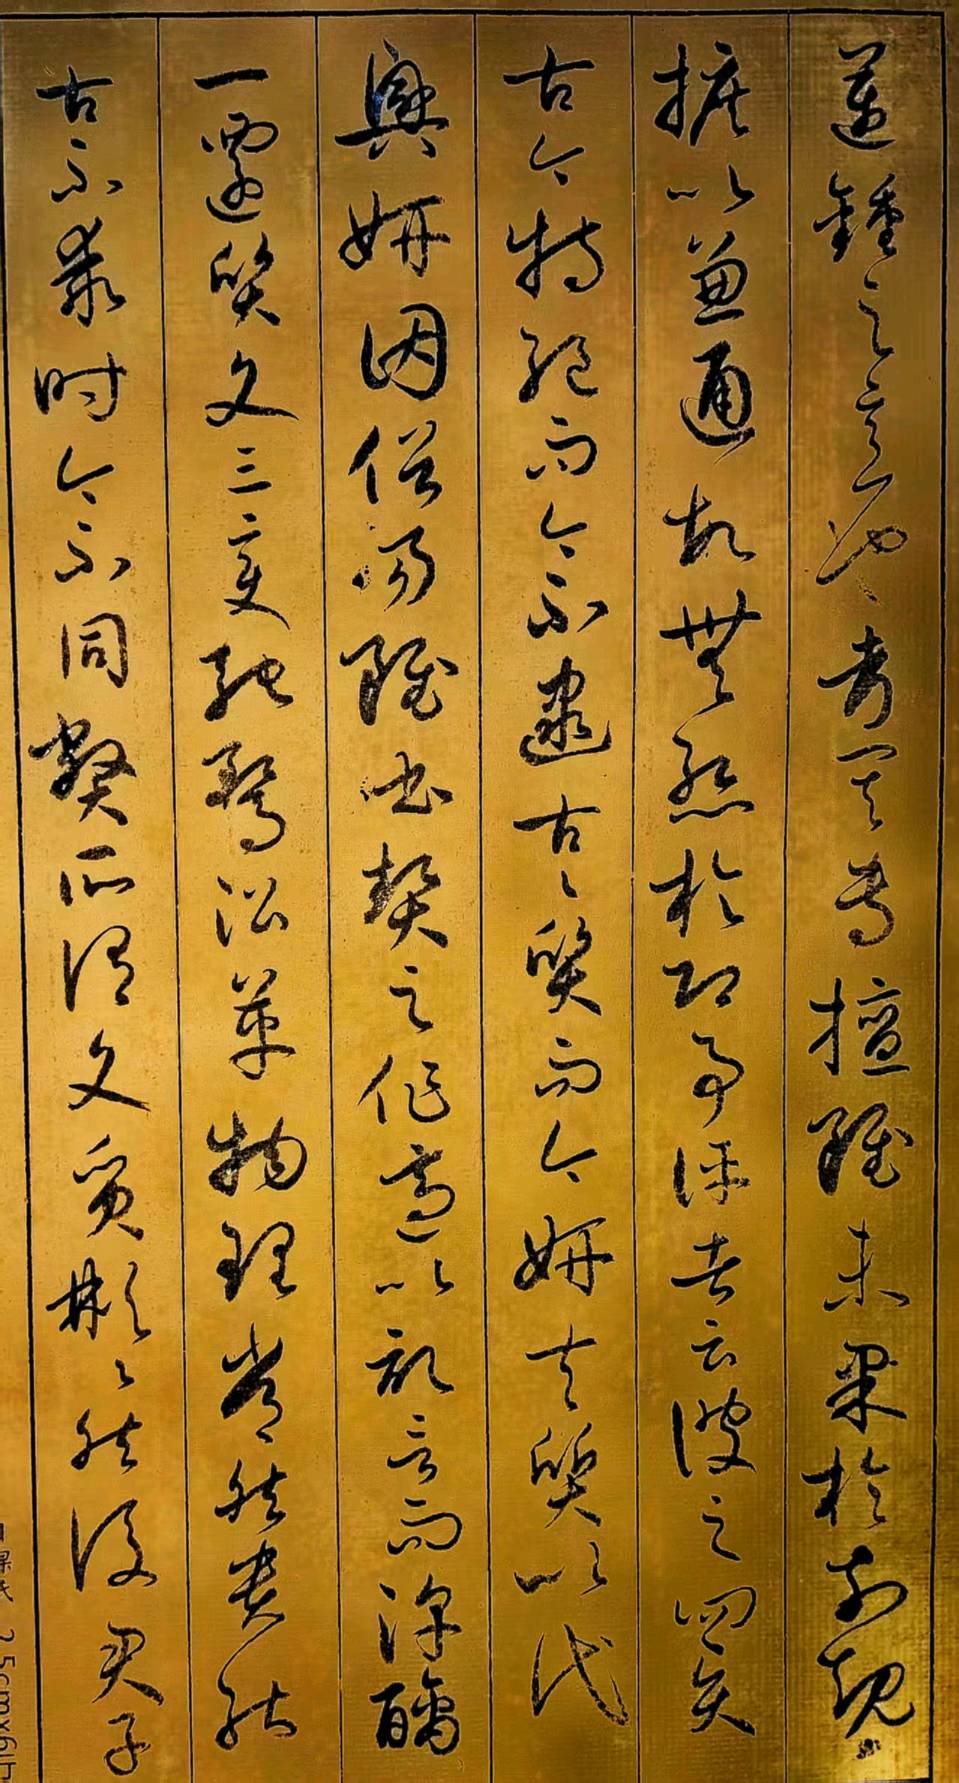 邁鍾之言也考其專擅雖未果於前規
摭以兼通故無慙於即事評者云彼之四賢
古今特絕而今不逮古〻質而今妍夫質以代
興妍因俗易雖書契之作適以記言而淳醨
一遷質文三變馳騖沿革物理常然貴能
古不乖時今不同弊所謂文質彬〻然後君子